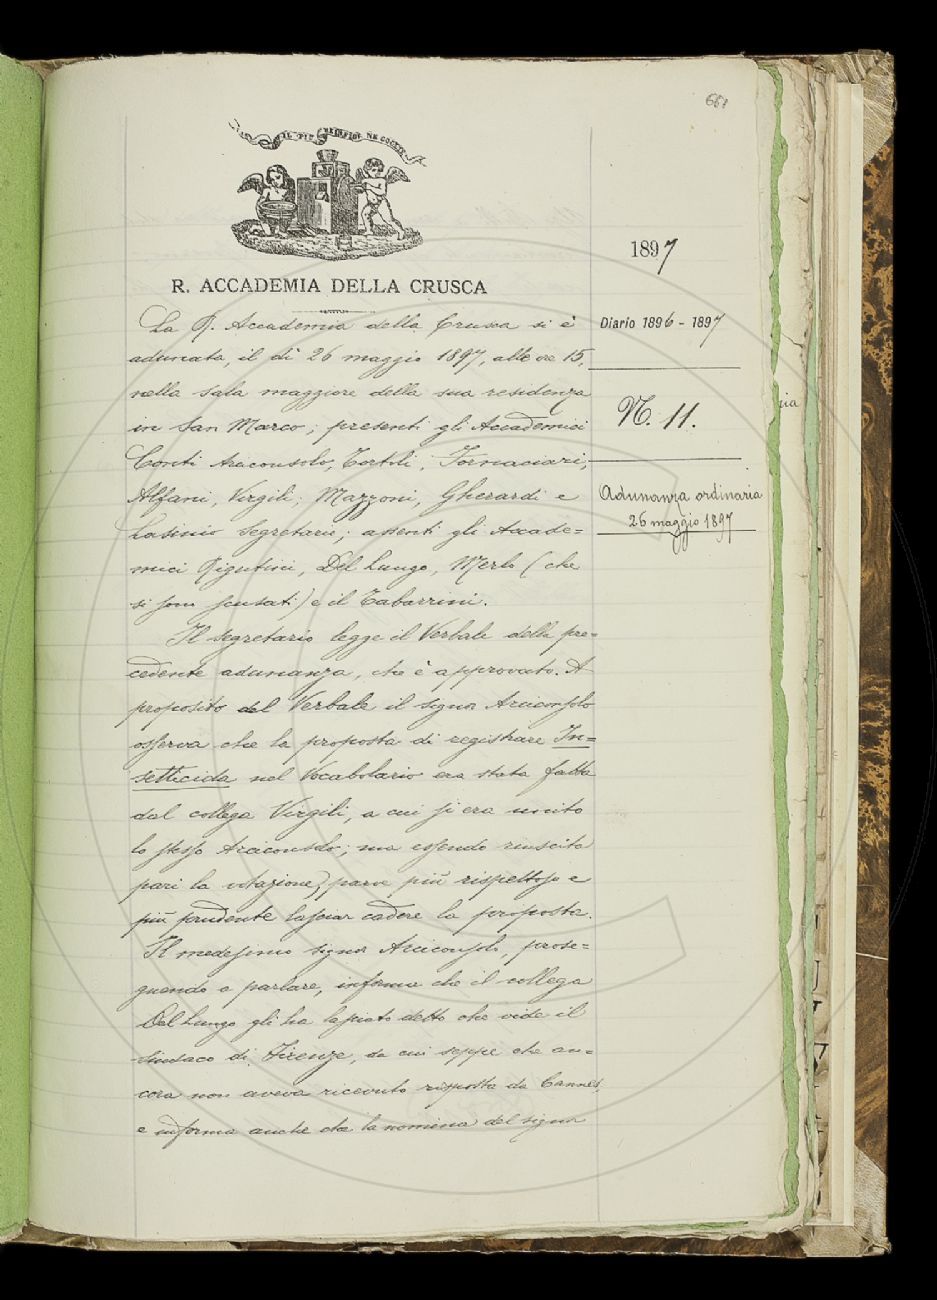 661
IL PIÙ BEL FIOR NE COGLIE
R. ACCADEMIA DELLA CRUSCA
1897
Diario 1896 - 1897
N. 11.
Adunanza ordinaria
26 maggio 1897
La R. Accademia della Crusca si è
adunata, il dì 26 maggio 1897, alle ore 15,
nella sala maggiore della sua residenza
in San Marco; presenti gli Accademici
Conti Arciconsolo, Tortoli, Fornaciari,
Alfani, Virgili, Mazzoni, Gherardi e
Lasinio Segretario; assenti gli Accade=
mici Rigutini, Del Lungo, Merlo (che
si sono scusati) e il Tabarrini.
Il Segretario legge il Verbale della pre=
cedente adunanza, che è approvato. A
proposito del Verbale il signor Arciconsolo
osserva che la proposta di registrare In=
setticida nel Vocabolario era stata fatta
dal collega Virgili, a cui si era unito
lo stesso Arciconsolo; ma essendo riuscita
pari la votazione, parve più rispettoso e
più prudente lasciar cadere la proposta.
Il medesimo signor Arciconsolo, prose=
guendo a parlare, informa che il collega
Del Lungo gli ha lasciato detto che vide il
Sindaco di Firenze, da cui seppe che an=
cora non aveva ricevuto risposta da Cannes,
e informa anche che la nomina del signor